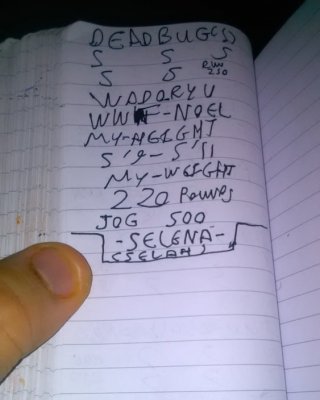 DEADBUG(S)
5 5 5
5 5 RUN 250
WADORYU
WWF-NOEL
MY-HEIGHT
5'9-5'11
MY-WEIGHT
220 POUNDS
JOG 500
-SELENA-
(SELAH)